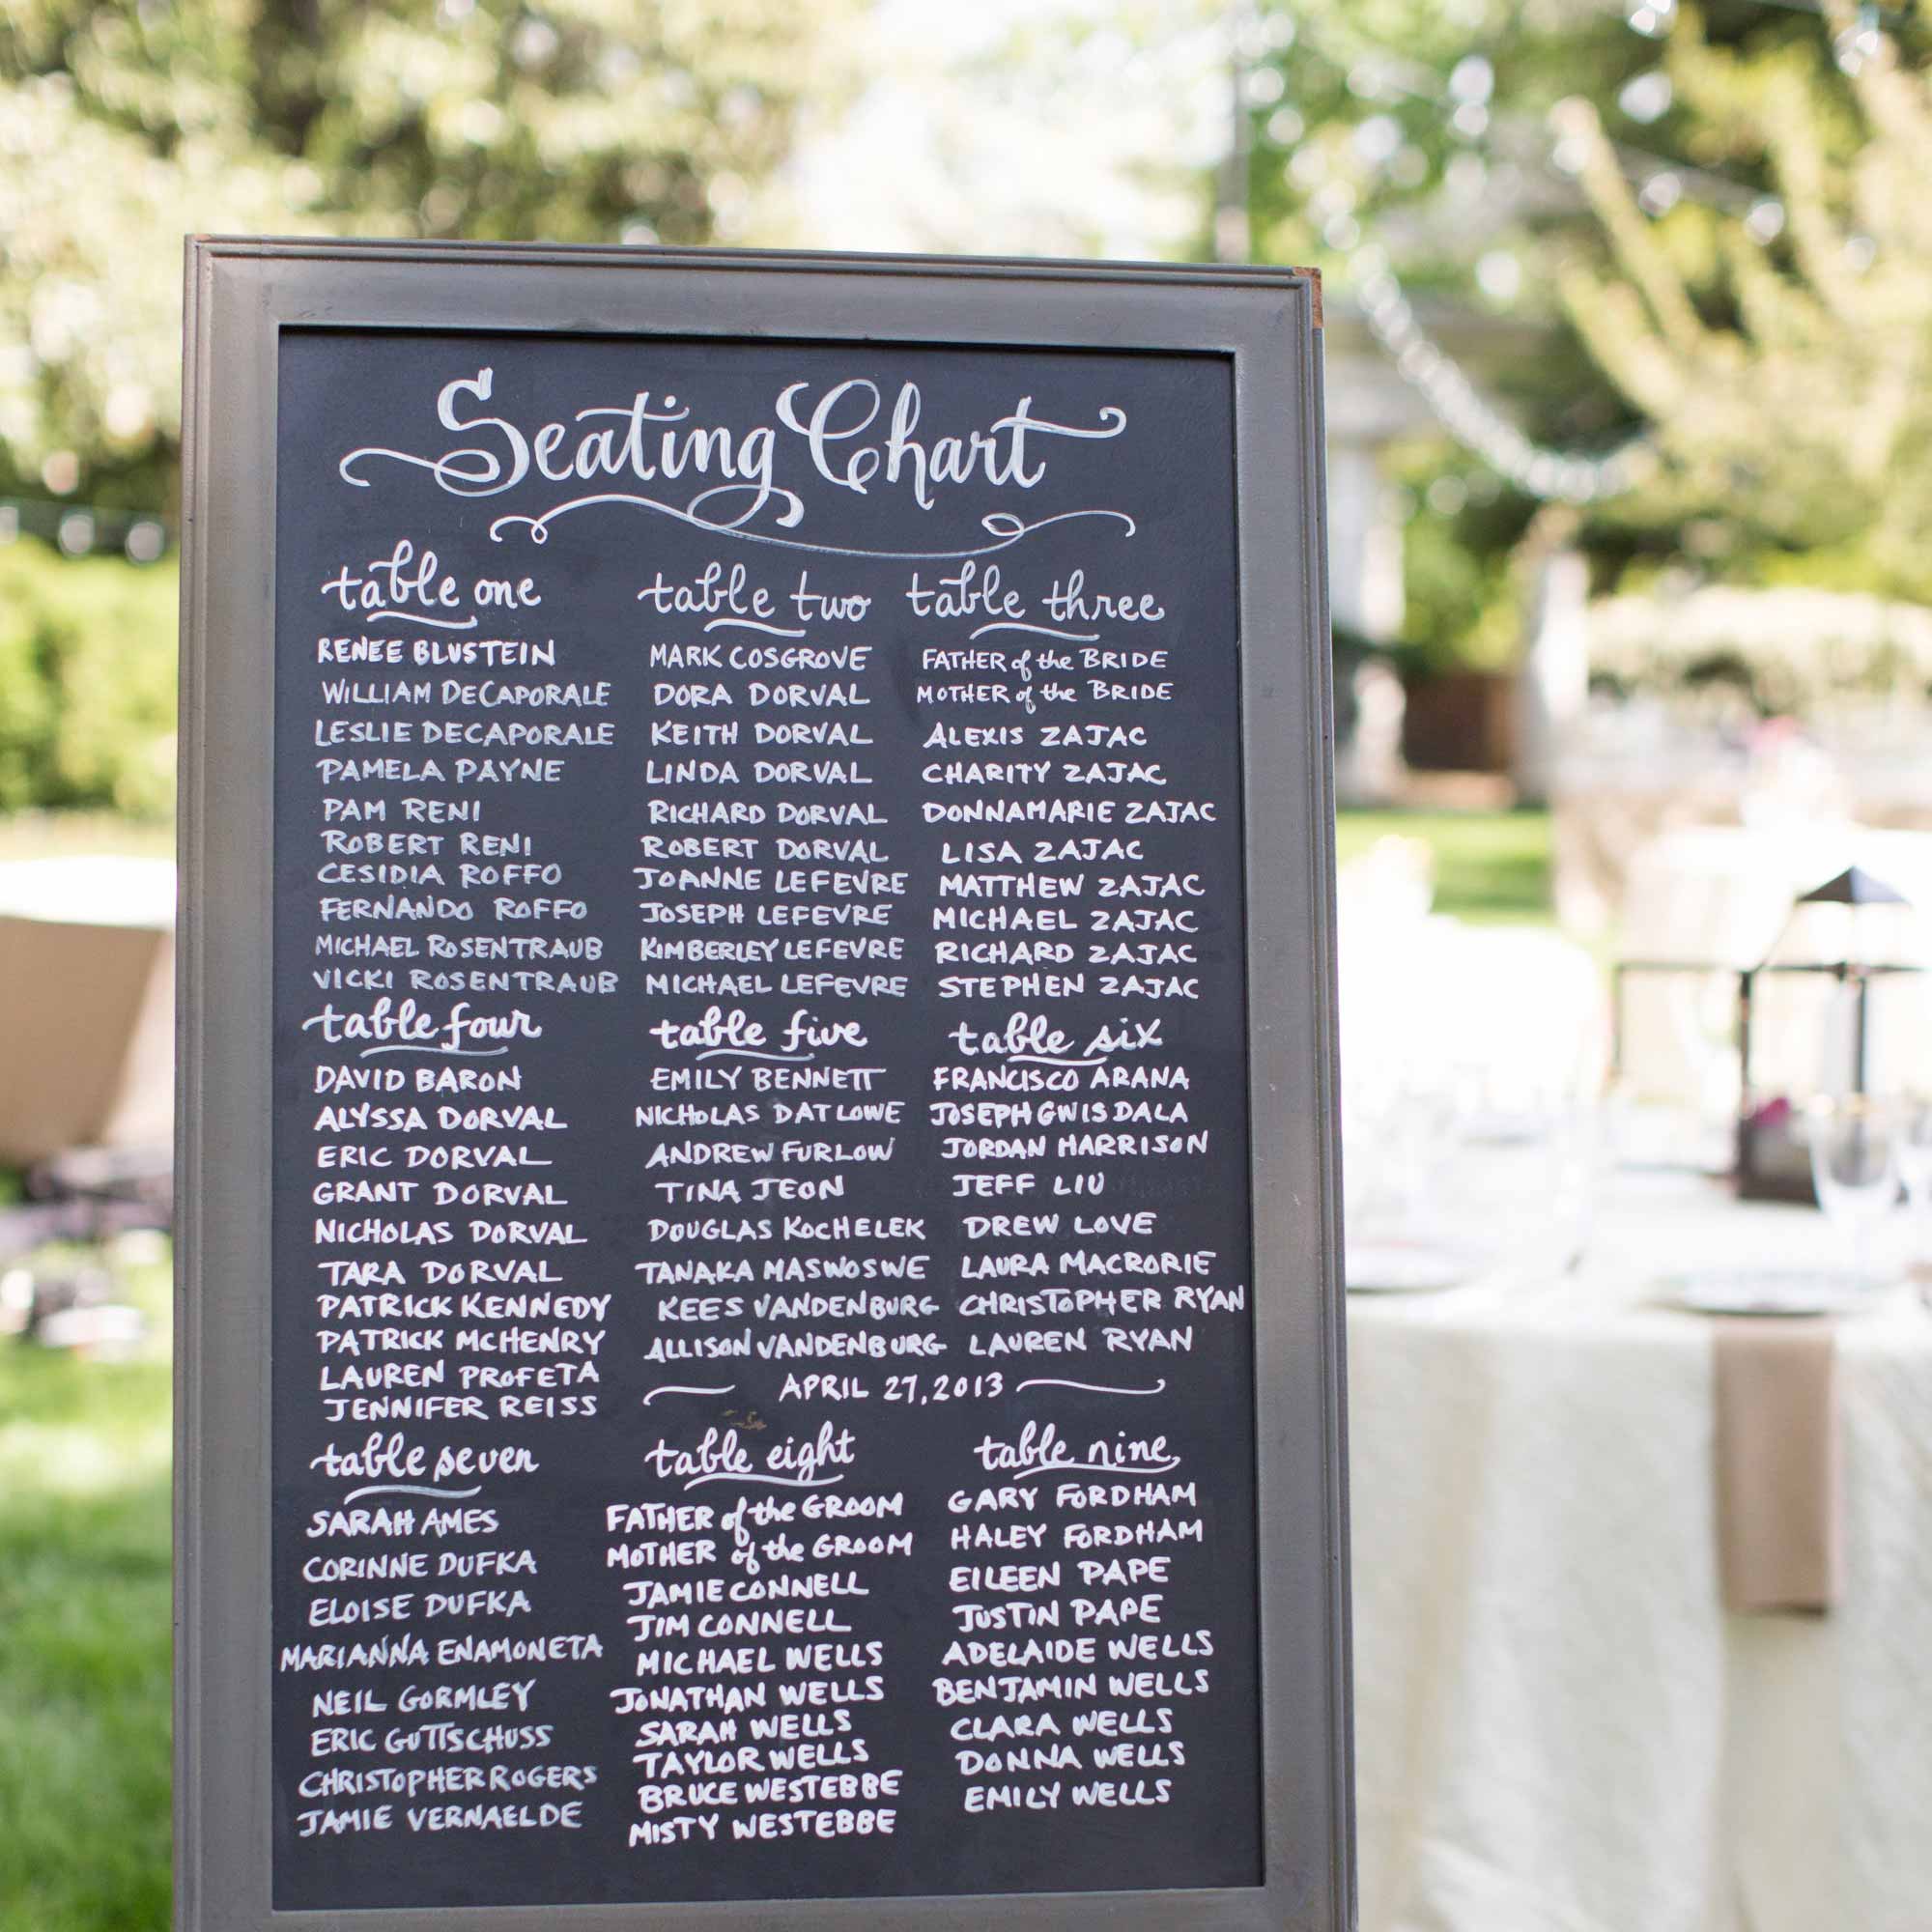 Seating Chart
table one
RENEE BLUSTEIN
WILLIAM DECAPORALE
LESLIE DECAPORALE
PAMELA PAYNE
PAM RENI
ROBERT RENI
CESIDIA ROFFO
FERNANDO ROFFO
MICHAEL ROSENTRAUB
VICKI ROSENTRAUB
table two
MARK COSGROVE
DORA DORVAL
KEITH DORVAL
LINDA DORVAL
RICHARD DORVAL
ROBERT DORVAL
JOANNE LEFEVRE
JOSEPH LEFEVRE
KIMBERLEY LEFEVRE
MICHAEL LEFEVRE
table three
FATHER of the BRIDE
MOTHER of the BRIDE
ALEXIS ZAJAC
CHARITY ZAJAC
DONNAMARIE ZAJAC
LISA ZAJAC
MATTHEW ZAJAC
MICHAEL ZAJAC
RICHARD ZAJAC
STEPHEN ZAJAC
table four
DAVID BARON
ALYSSA DORVAL
ERIC DORVAL
GRANT DORVAL
NICHOLAS DORVAL
TARA DORVAL
PATRICK KENNEDY
PATRICK MCHENRY
LAUREN PROFETA
JENNIFER REISS
table five
EMILY BENNETT
NICHOLAS DATLOWE
ANDREW FURLOW
TINA JEON
DOUGLAS KOCHELEK
TANAKA MASWOSWE
KEES VANDENBURG
ALLISON VANDENBURG
table six
FRANCISCO ARANA
JOSEPH GWISDALA
JORDAN HARRISON
JEFF LIU
DREW LOVE
LAURA MACRORIE
CHRISTOPHER RYAN
LAUREN RYAN
APRIL 27, 2013
table seven
SARAH AMES
CORINNE DUFKA
ELOISE DUFKA
MARIANNA ENAMONETA
NEIL GORMLEY
ERIC GUTTSCHUSS
CHRISTOPHER ROGERS
JAMIE VERNAELDE
table eight
FATHER of the GROOM
MOTHER of the GROOM
JAMIE CONNELL
JIM CONNELL
MICHAEL WELLS
JONATHAN WELLS
SARAH WELLS
TAYLOR WELLS
BRUCE WESTEBBE
MISTY WESTEBBE
table nine
GARY FORDHAM
HALEY FORDHAM
EILEEN PAPE
JUSTIN PAPE
ADELAIDE WELLS
BENJAMIN WELLS
CLARA WELLS
DONNA WELLS
EMILY WELLS